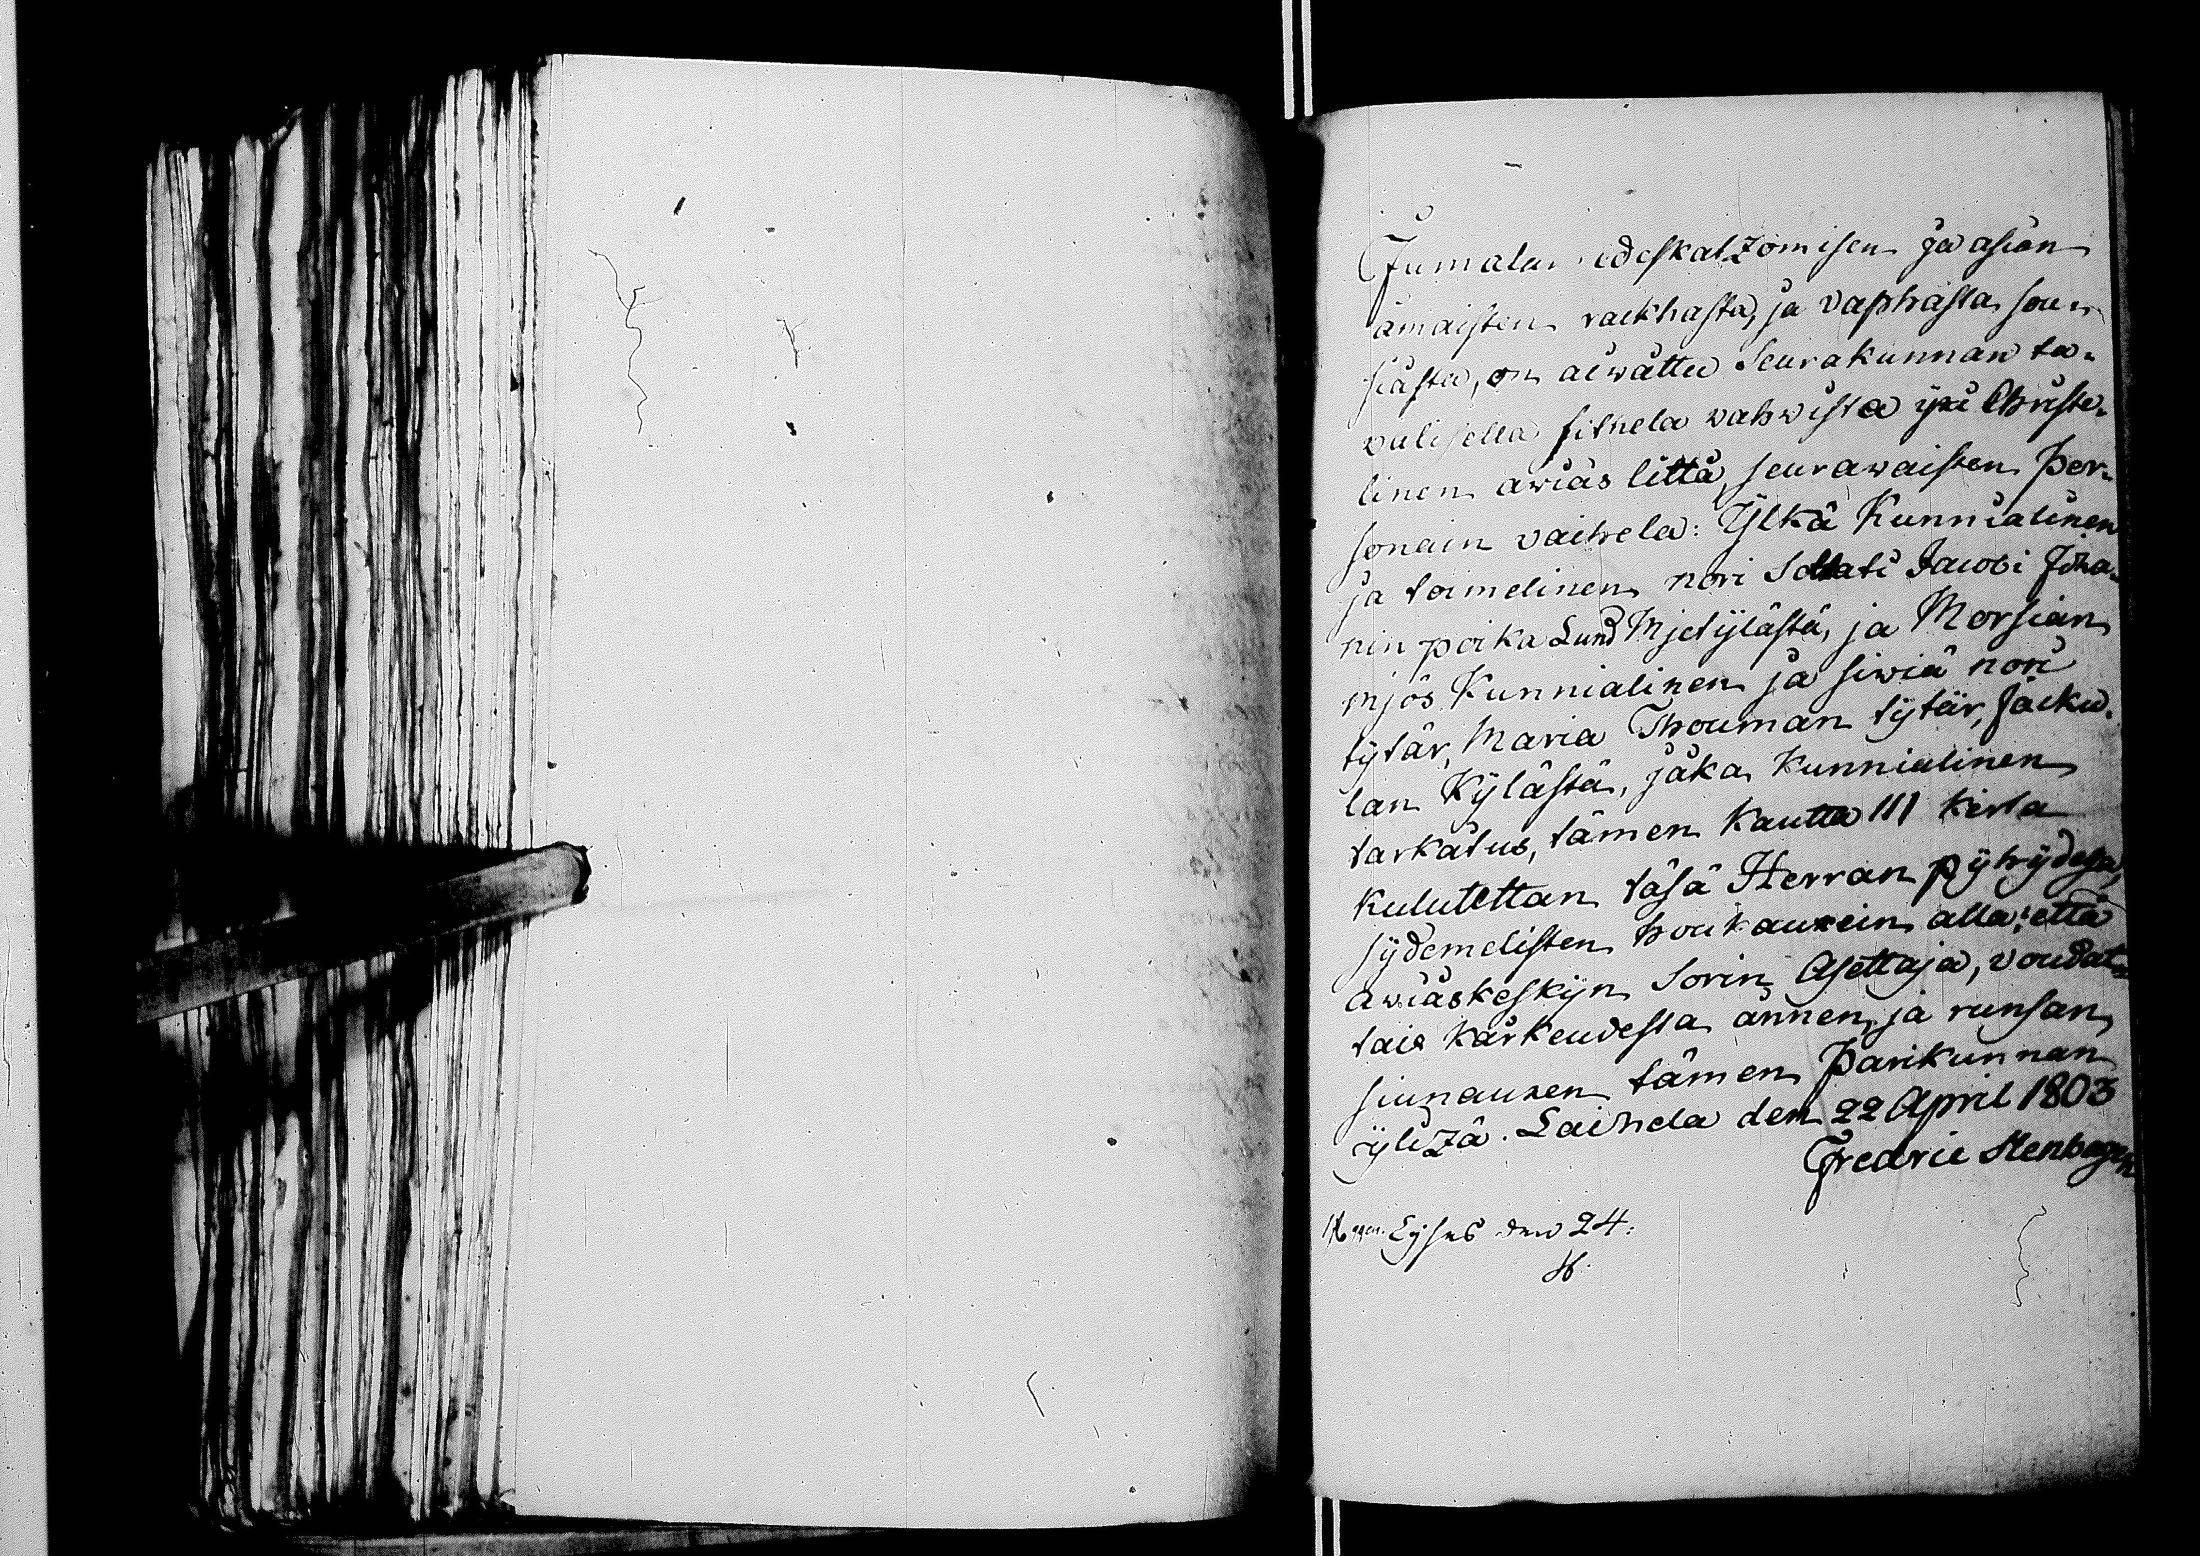 Jumalan edeskatzomisen ja asian
amaisten rackhasta, ja vaphasta sou-
siasta, on aiwattu Seurakunnan ta-
valisella sitnela vahwista yxi Christe-
linen awiäs littå, seurawaisten Per-
sonain vaihela: Ylkä Kunnialinen
ja toimelinen nori Soldati Jacobi Joha-
nin poika Lund Mjetylästä, ja Morsian
mjös Kunnialinen ja siwiä nori
tytär, Maria Thouman tytär, Jacku-
lan Kylästä, jåka Kunnialinen
tarkåtus, tämen Kautta III kerta
Kulutettan täsä Herran pyhydesä,
sydemelisten houkauxein alla; että
awiäskeskyn Sorin Asettaja, voudat-
tais kårkeudesta annen, ja runsan
siunauxen tämen Parikunnan
ylizä. Laihela den 22 April 1803
Fredric Stenhagen
Lyses den 24: